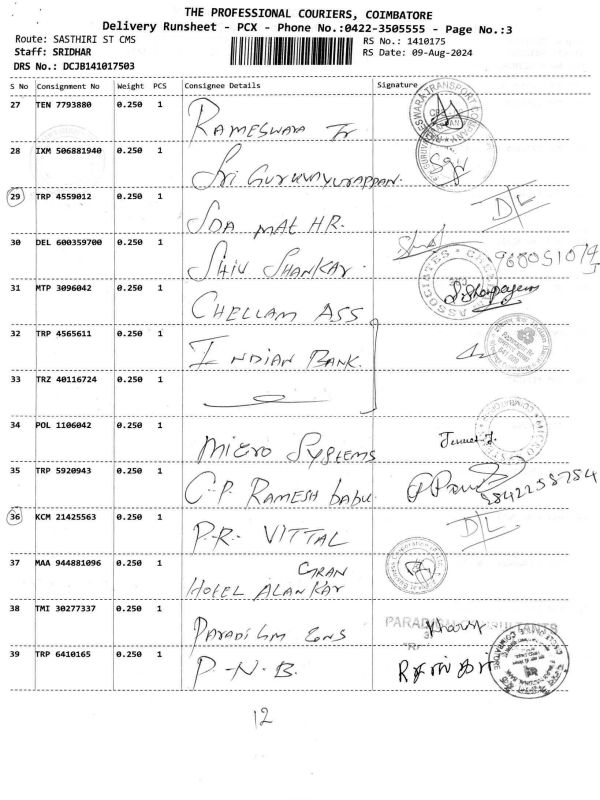 THE PROFESSIONAL COURIERS, COIMBATORE
Delivery Runsheet - PCX - Phone No.:0422-3505555 - Page No.:3
Route: SASTHIRI ST CMS
RS No.: 1410175
Staff: SRIDHAR
RS Date: 09-Aug-2024
DRS No.: DCJB141017503
S No Consignment No Weight PCS Consignee Details Signature
27 TEN 7793880 0.250 1 RAMESWARA Tr
28 IXM 506881940 0.250 1 Sri GURUVAYURAPPAN. Sgv
29 TRP 4559012 0.250 1 SDA MAT HR. D/L
30 DEL 600359700 0.250 1 SHIV SHANKAR.
31 MTP 3096042 0.250 1 CHELLAM ASS
ASSOCIATES
32 TRP 4565611 0.250 1 INDIAN BANK.
33 TRZ 40116724 0.250 1
34 POL 1106042 0.250 1 MICRO SYSTEMS
35 TRP 5920943 0.250 1 C.P. RAMESH babu
36 KCM 21425563 0.250 1 P.R. VITTAL D/L
37 MAA 944881096 0.250 1 GRAN
HOTEL ALANKAR
38 TMI 30277337 0.250 1 PARADIGM CONS
39 TRP 6410165 0.250 1 P-N-B.
12